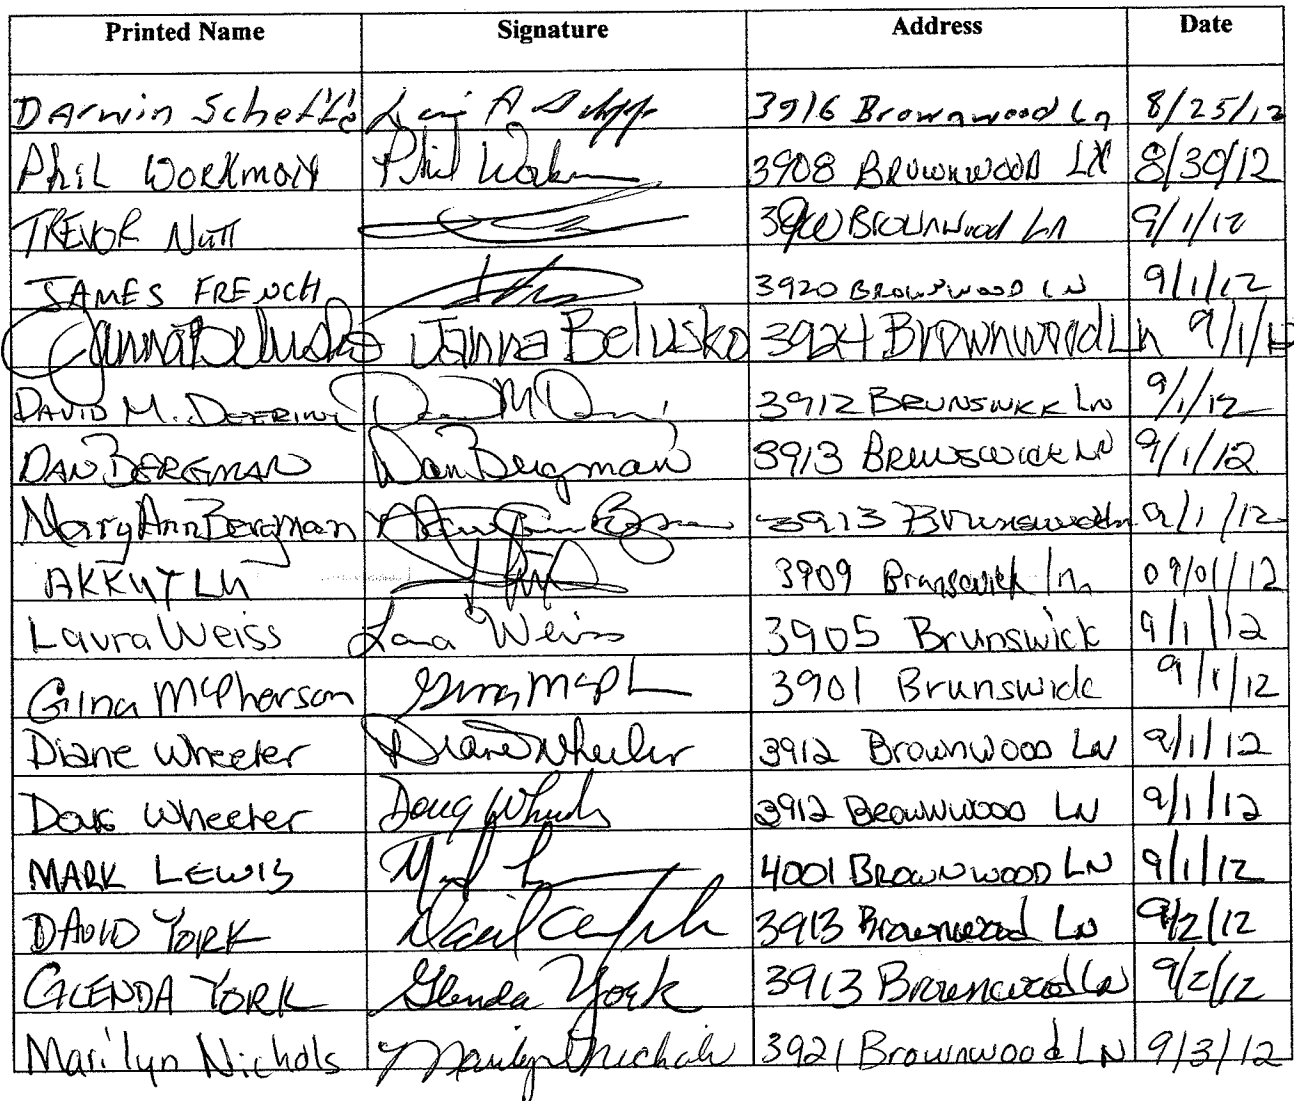 Printed Name Signature Address Date
Darwin 3916 Brownwood Ln 8/25/12
Phil Workman Phil 3908 Brownwood LN 8/30/12
TREVOR Nutt Brownwood Ln 9/1/12
JAMES FRENCH 3920 Brownwood LN 9/1/12
Janna Belusko Janna Belusko 3924 Brownwood Ln 9/1/12
DAVID M. DEERING 3912 BRUNSWICK LN 9/1/12
DAN BERGMAN Dan Bergman 3913 BRUNSWICK LN 9/1/12
Mary Ann Bergman 3913 Brunswick 9/1/12
3909 Brunswick ln 09/01/12
Laura Weiss Laura Weiss 3905 Brunswick 9/1/12
Gina McPherson Gina McPh 3901 Brunswick 9/1/12
Diane Wheeler Diane Wheeler 3912 Brownwood LN 9/1/12
Doug Wheeler Doug Wheeler 3912 Brownwood LN 9/1/12
MARK LEWIS 4001 BROWNWOOD LN 9/1/12
DAVID YORK David 3913 Brownwood LN 9/2/12
GLENDA YORK Glenda York 3913 Brownwood LN 9/2/12
Marilyn Nichols Marilyn Nichols 3921 Brownwood LN 9/3/12